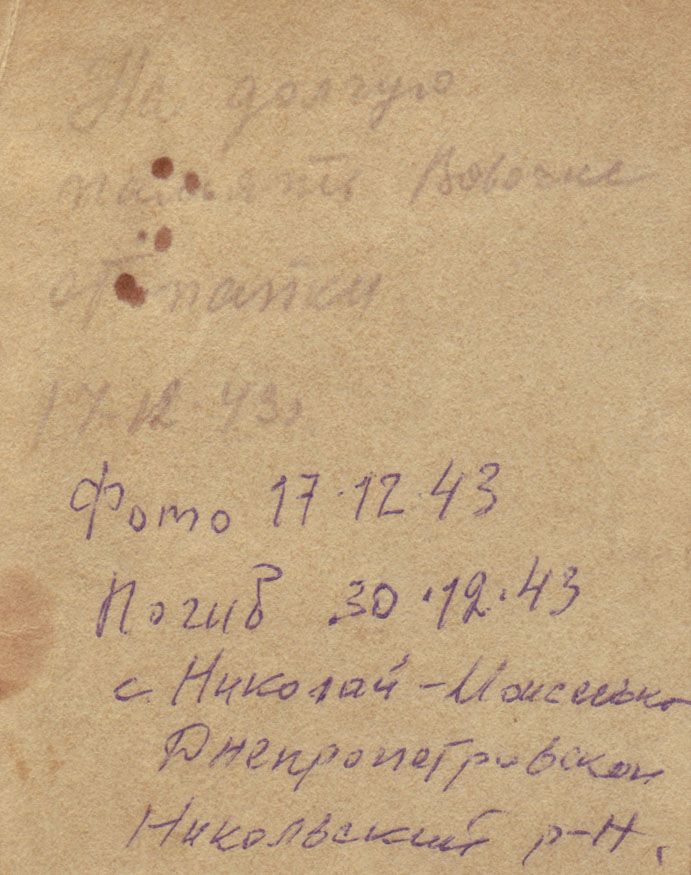 На долгую
память Вовочке
от папки
17-12-43г
Фото 17.12.43
Погиб 30.12.43
с. Николай-
Днепропетровской
Никольский р-н.